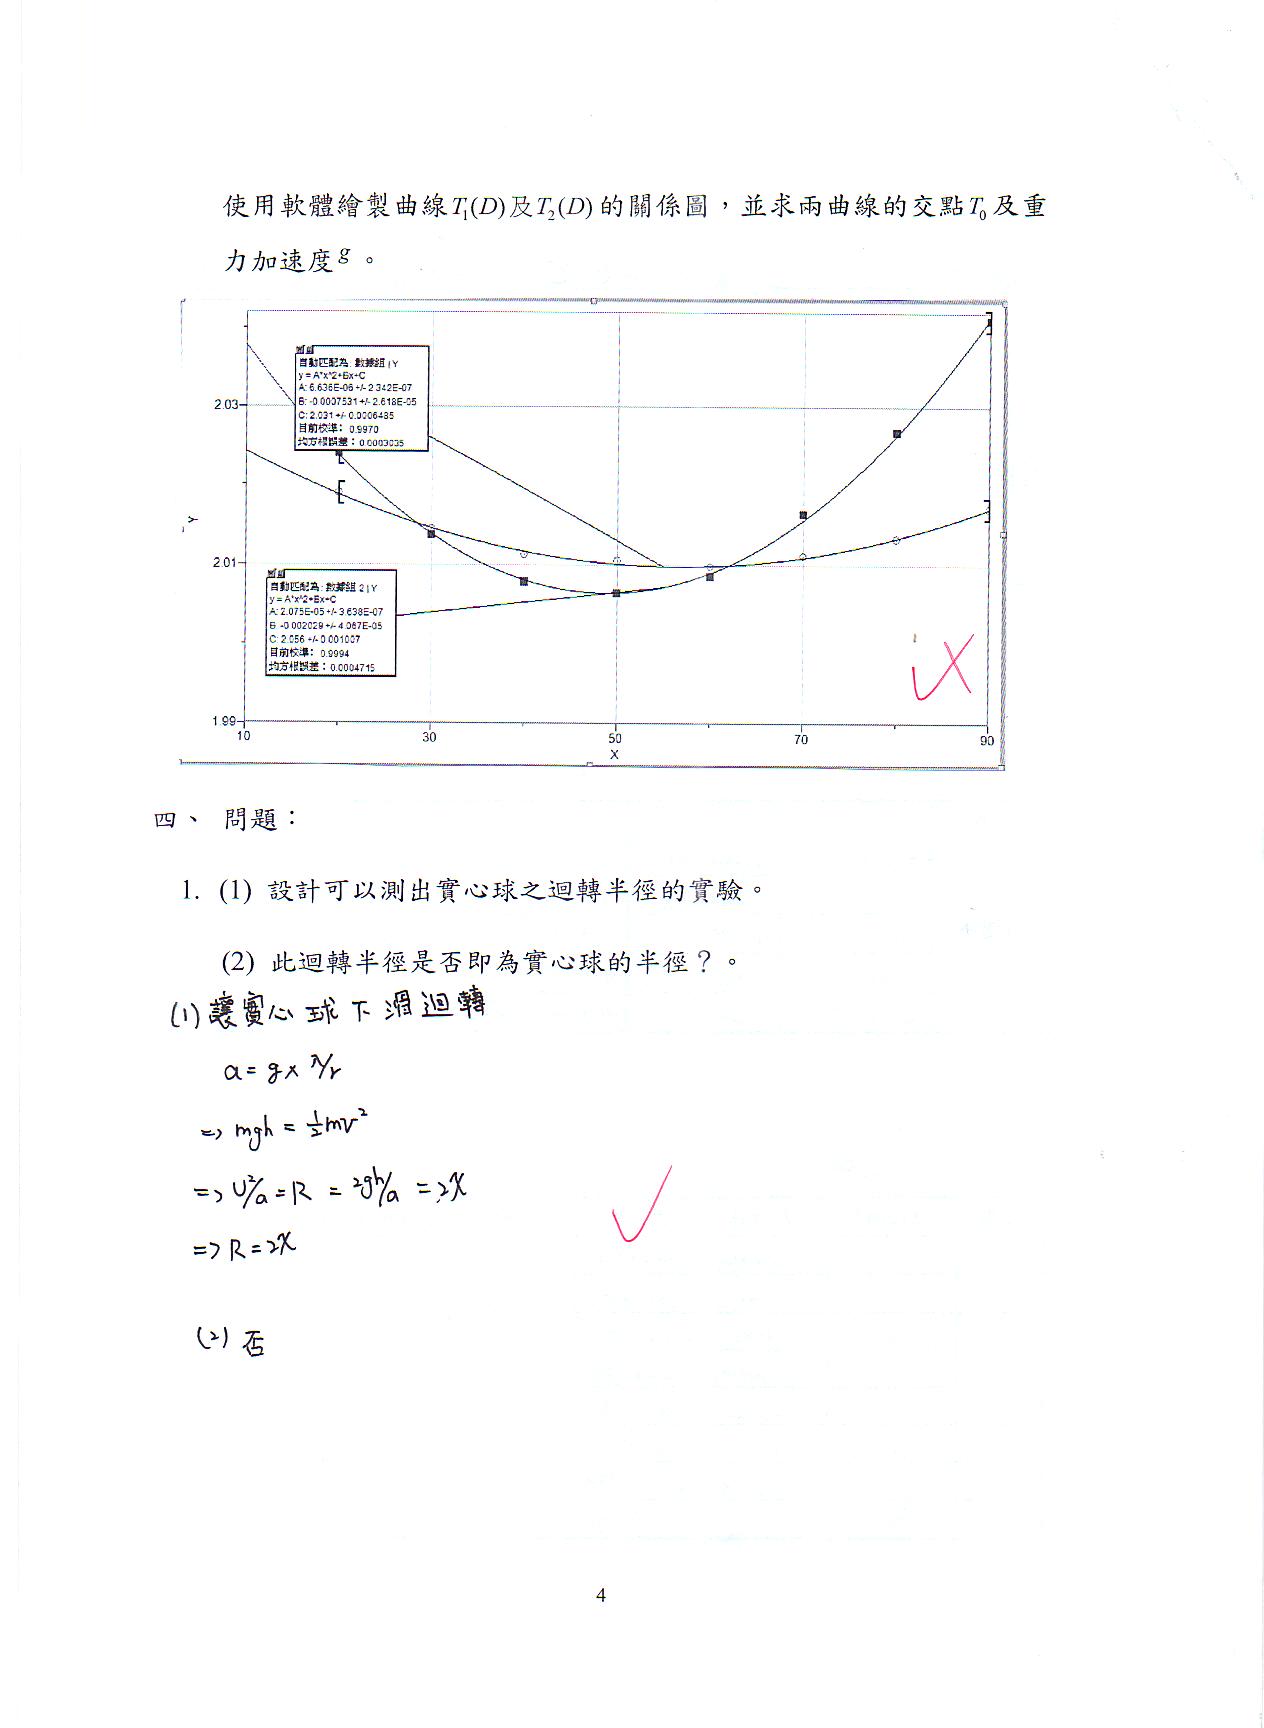 使用軟體繪製曲線T₁(D)及T₂(D)的關係圖，並求兩曲線的交點T₀及重
力加速度g。
自動匹配為: 數據組 | Y
y = A*x^2+Bx+C
A: 6.636E-06 +/- 2.342E-07
B: -0.0007531 +/- 2.618E-05
C: 2.031 +/- 0.0006485
目前校準: 0.9970
均方根誤差: 0.0003035
2.03
Y
2.01
自動匹配為: 數據組 2 | Y
y = A*x^2+Bx+C
A: 2.075E-05 +/- 3.638E-07
B: -0.002029 +/- 4.067E-05
C: 2.056 +/- 0.001007
目前校準: 0.9994
均方根誤差: 0.0004715
1.99
10 30 50 70 90
X
四、 問題：
1. (1) 設計可以測出實心球之迴轉半徑的實驗。
(2) 此迴轉半徑是否即為實心球的半徑？。
(1) 讓實心球下滑迴轉
a = g x
=> mgh = ½mv²
=> v²/a = R = 2gh/a = 2x
=> R = 2x
(2) 否
4